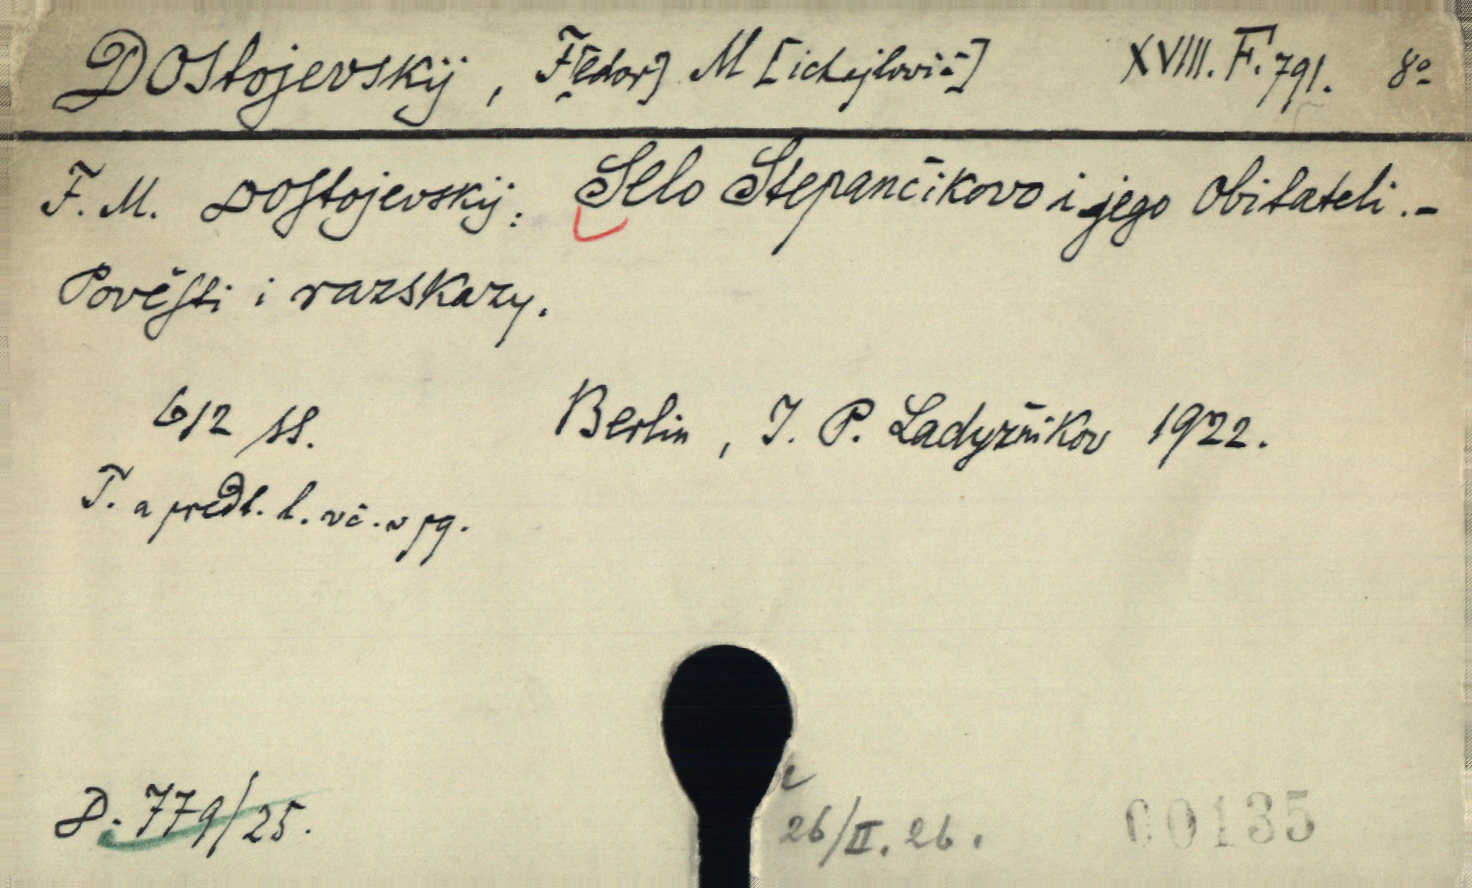 Dostojevskij, F[edor] M[ichajlovič] XVIII. F. 791. 8°
F. M. Dostojevskij: Selo Stepančikovo i jego obitateli.-
Pověsti i razskazy.
612 ss. Berlin, I. P. Ladyžnikov 1922.
T. a předt. l. vč. v pg.
D. 779/25.
26/II. 26.
00135